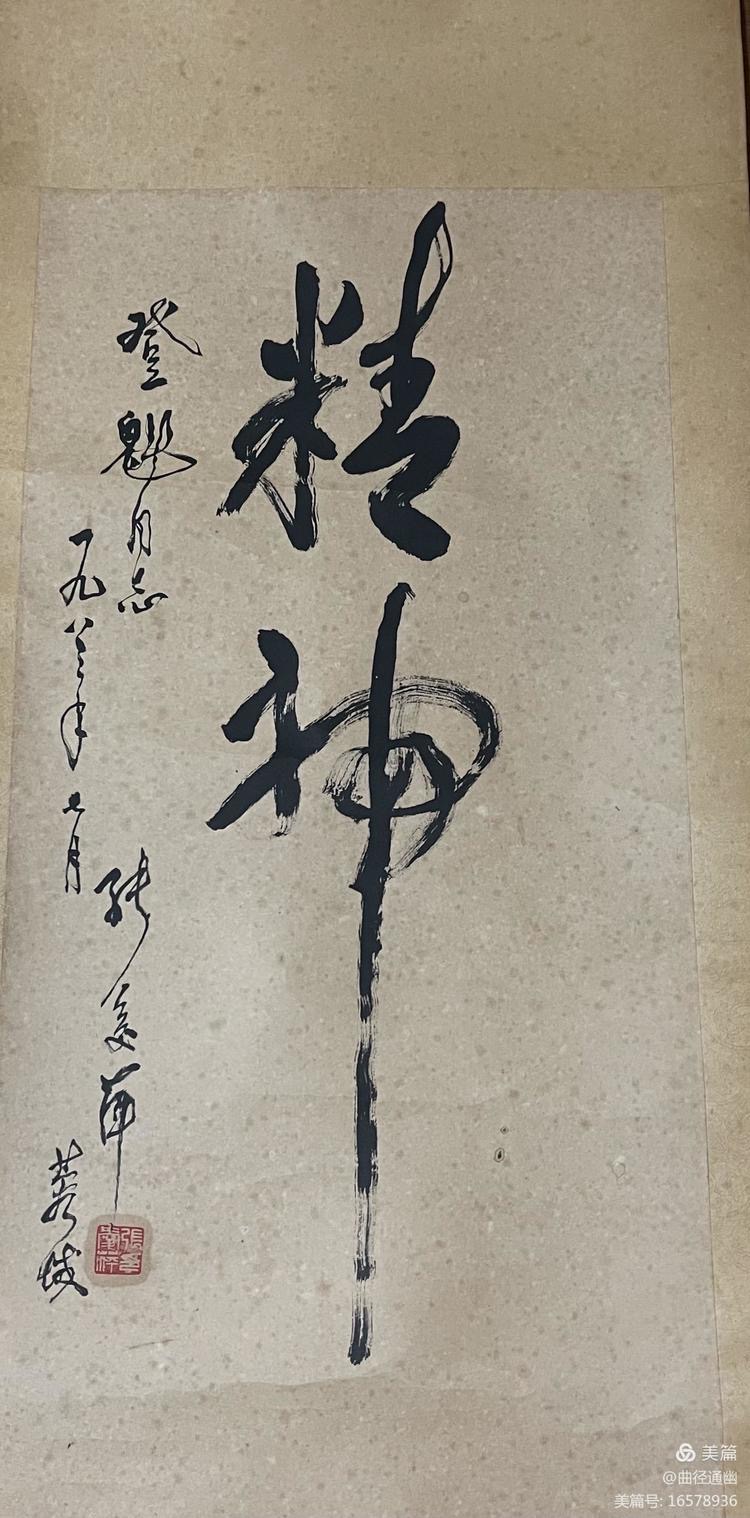 精神
登魁同志
一九八三年七月
张爱萍
蓉城
美篇
@曲径通幽
美篇号: 16578936